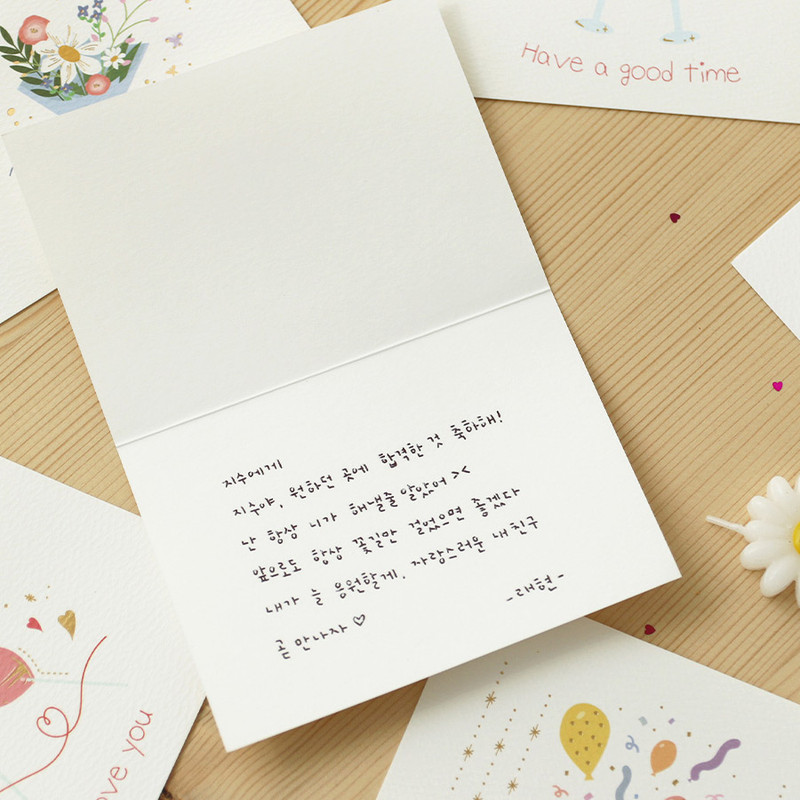 Have a good time
지수에게
지수야, 원하던 곳에 합격한 것 축하해!
난 항상 니가 해낼줄 알았어 ><
앞으로도 항상 꽃길만 걸었으면 좋겠다
내가 늘 응원할게. 자랑스러운 내 친구
곧 만나자 ♡
-래현-
ove you